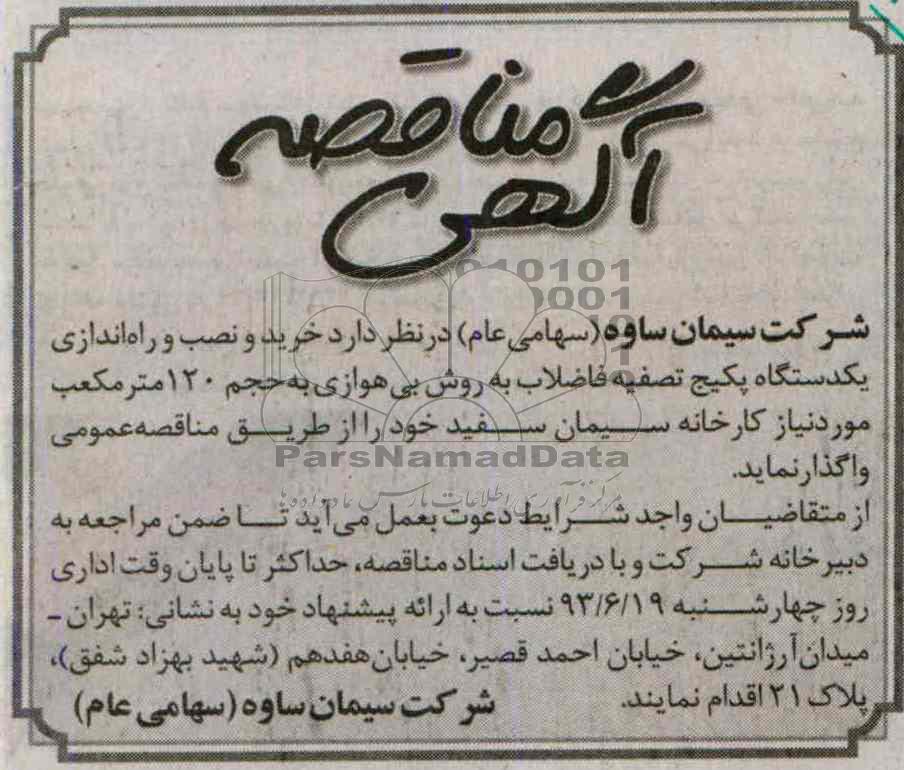 آگهی مناقصه
شرکت سیمان ساوه (سهامی عام) درنظر دارد خرید و نصب و راه‌اندازی
یکدستگاه پکیج تصفیه فاضلاب به روش بی هوازی به حجم ۱۲۰ متر مکعب
موردنیاز کارخانه سیمان سفید خود را از طریق مناقصه عمومی
واگذار نماید.
از متقاضیان واجد شرایط دعوت بعمل می‌آید تا ضمن مراجعه به
دبیرخانه شرکت و با دریافت اسناد مناقصه، حداکثر تا پایان وقت اداری
روز چهارشنبه ۹۳/۶/۱۹ نسبت به ارائه پیشنهاد خود به نشانی: تهران -
میدان آرژانتین، خیابان احمد قصیر، خیابان هفدهم (شهید بهزاد شفق)،
پلاک ۲۱ اقدام نمایند.
شرکت سیمان ساوه (سهامی عام)
ParsNamadData
مرکز فرآوری اطلاعات پارس نماد داده ها
010101
0001